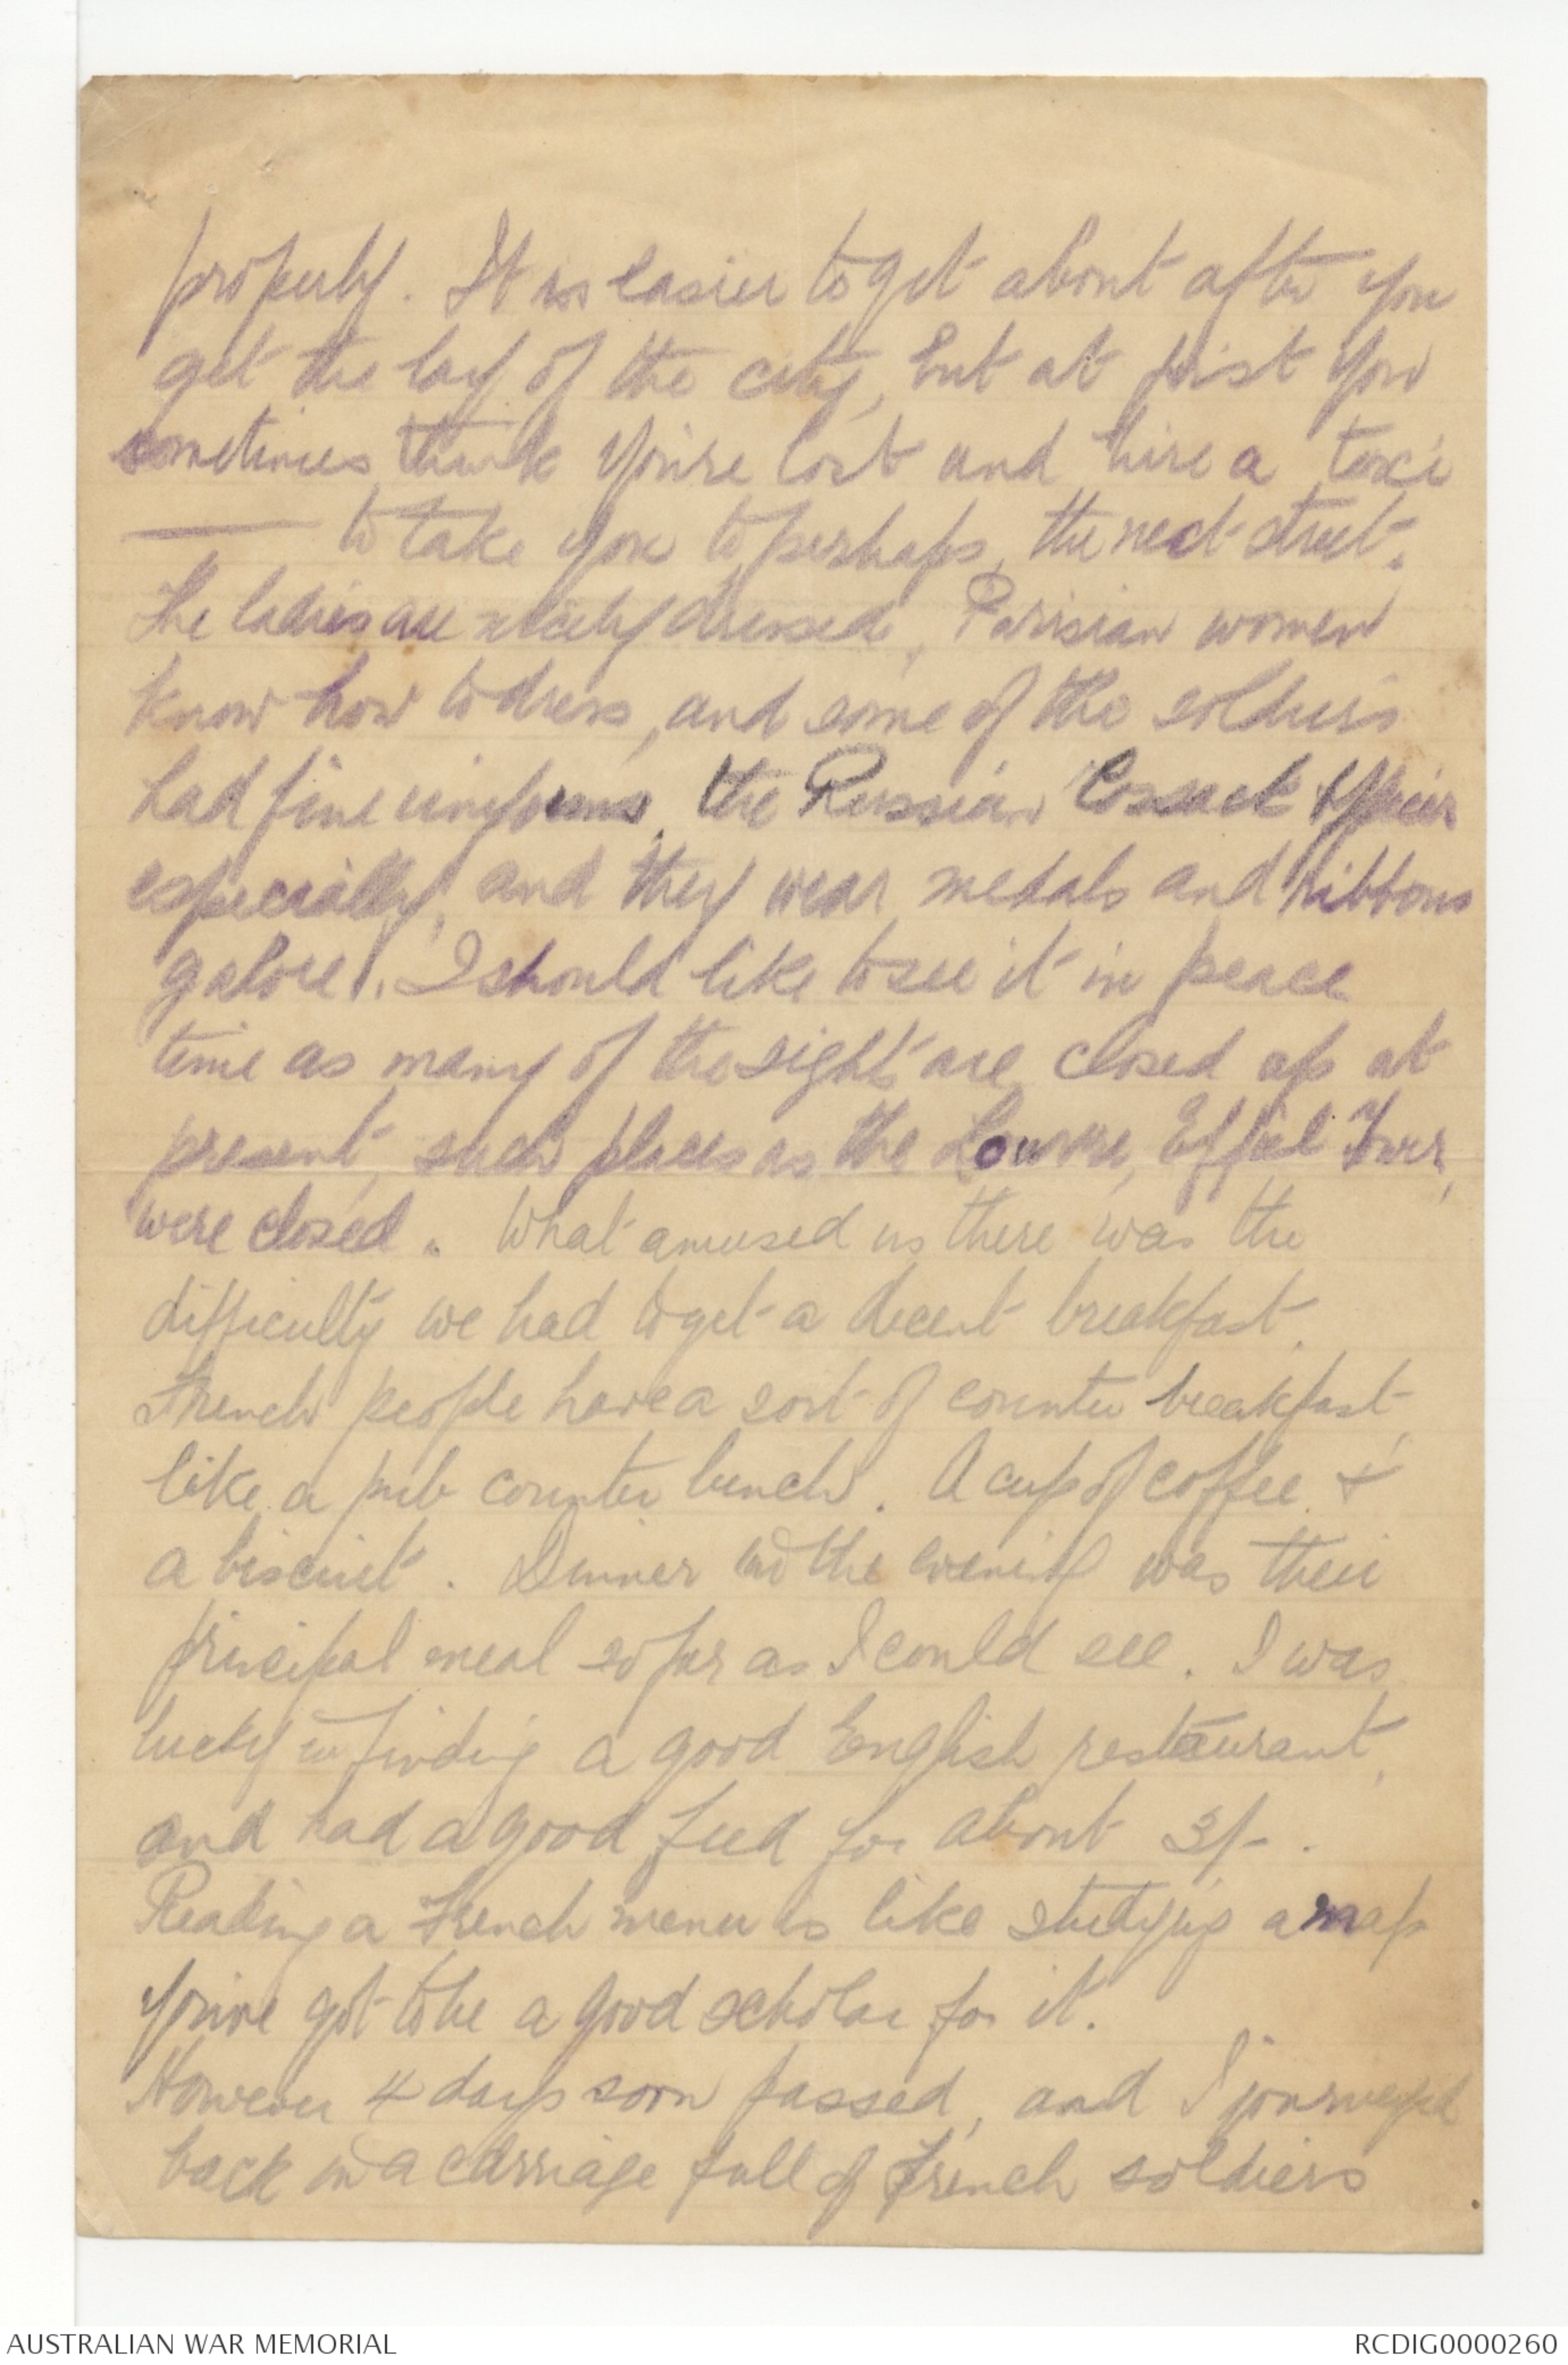 properly. It is easier to get about after you
get the lay of the city, but at first you
sometimes think you're lost and hire a taxi
— to take you to perhaps, the next street.
The ladies are nicely dressed, Parisian women
know how to dress, and some of the soldiers
had fine uniforms, the Russian Cossack officer
especially, and they wear medals and ribbons
galore. I should like to see it in peace
time as many of the sight are closed up at
present, such places as the Louvre, Effiel Tower,
were closed. What amused us there was the
difficulty we had to get a decent breakfast.
French people have a sort of counter breakfast,
like a pub counter lunch. A cup of coffee &
a biscuit. Dinner in the evening was their
principal meal so far as I could see. I was
lucky in finding a good English restaurant,
and had a good feed for about 3/-.
Reading a French menu is like studying a map
you've got to be a good scholar for it.
However 4 days soon passed, and I journeyed
back in a carriage full of French soldiers
AUSTRALIAN WAR MEMORIAL
RCDIG0000260